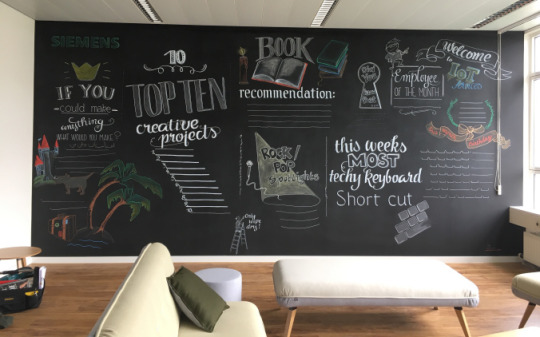 SIEMENS
IF YOU
could make
anything
WHAT WOULD YOU MAKE?
10
TOP TEN
creative
projects
BOOK
recommendation:
ROCK
POP
Employee
OF THE MONTH
Welcome
IoT
this weeks
MOST
techy keyboard
Short cut